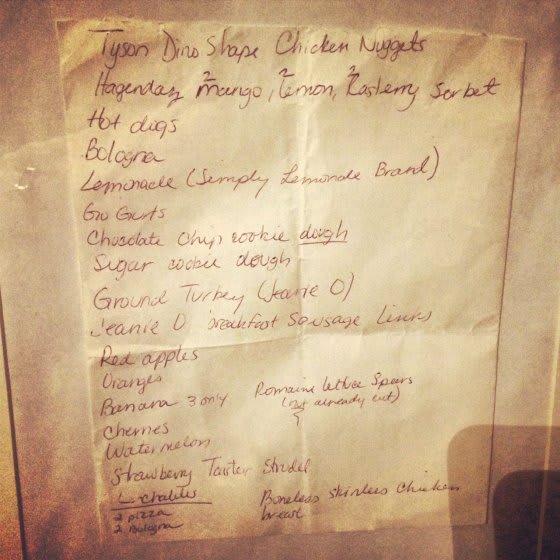 Tyson Dino Shape Chicken Nuggets
Hagendaz 2 mango, 2 lemon, 2 Rasberry Sorbet
Hot dogs
Bologna
Lemonade (Simply Lemonade Brand)
Go Gurts
Chocolate Chip cookie dough
Sugar cookie dough
Ground Turkey (Jeanie O)
Jeanie O breakfast Sausage Links
Red apples
Oranges
Banana 3 only
Romaine lettuce Spears
(not already cut)
Cherries
Watermelon
Strawberry Toaster Strudel
Boneless skinless chicken
breast
2 pizza
2 Bologna